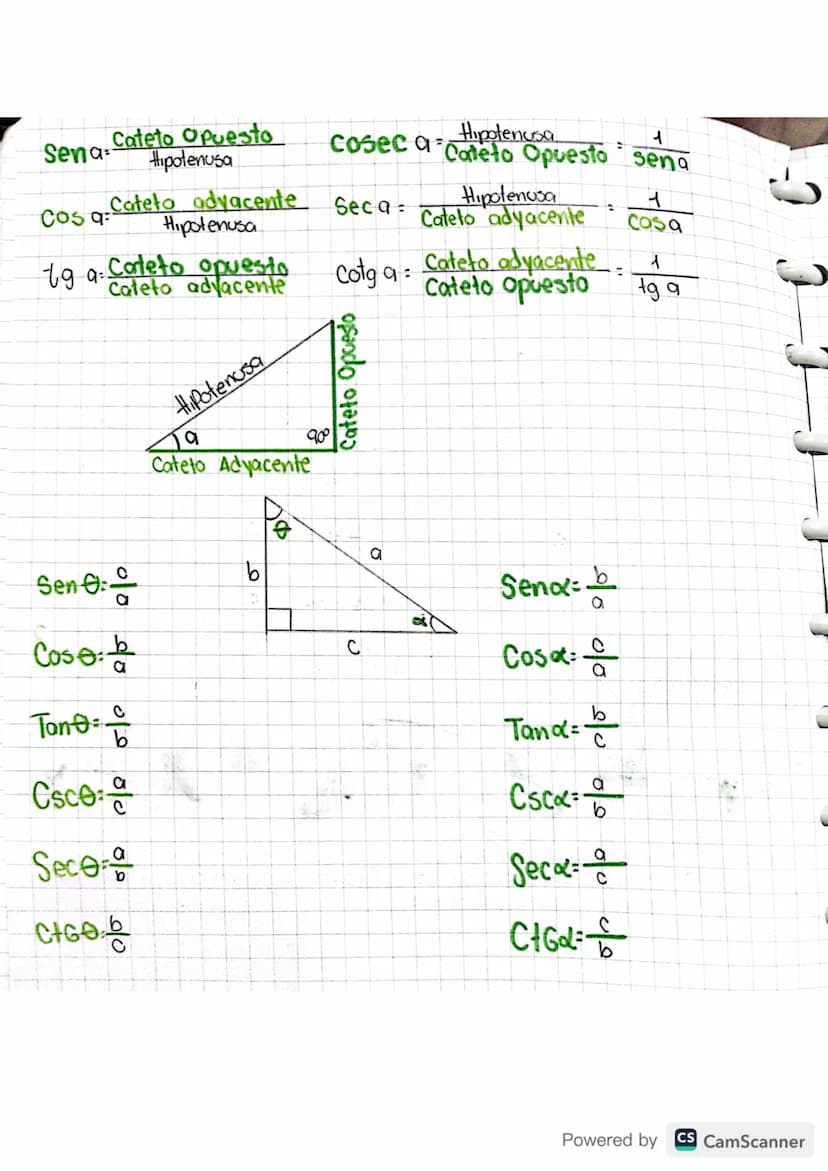 Sen a = Cateto Opuesto / Hipotenusa
Cosec a = Hipotenusa / Cateto Opuesto = 1 / sen a
Cos a = Cateto adyacente / Hipotenusa
Sec a = Hipotenusa / Cateto adyacente = 1 / cos a
tg a = Cateto opuesto / Cateto adyacente
Cotg a = Cateto adyacente / Cateto Opuesto = 1 / tg a
Hipotenusa
Cateto Opuesto
a
90°
Cateto Adyacente
θ
a
b
α
c
Sen θ = c/a
Sen α = b/a
Cos θ = b/a
Cos α = c/a
Tan θ = c/b
Tan α = b/c
Csc θ = a/c
Csc α = a/b
Sec θ = a/b
Sec α = a/c
CtG θ = b/c
CtG α = c/b
Powered by CS CamScanner